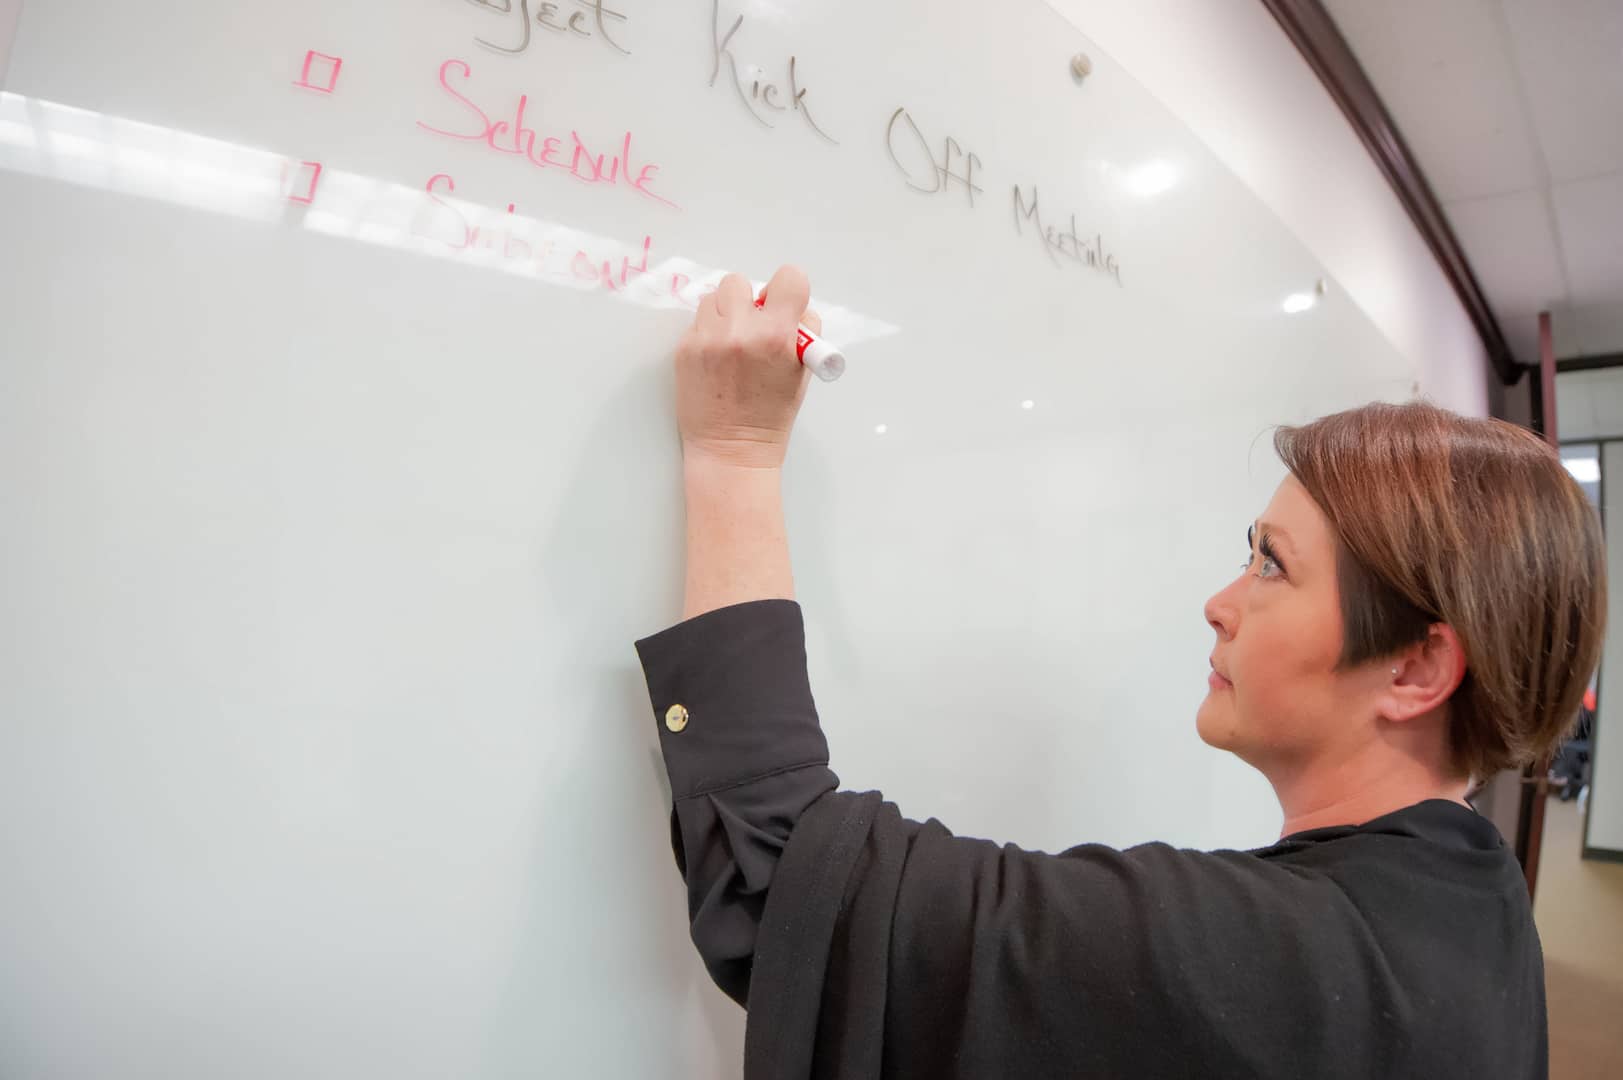 oject Kick Off Meeting
Schedule
Subcontra